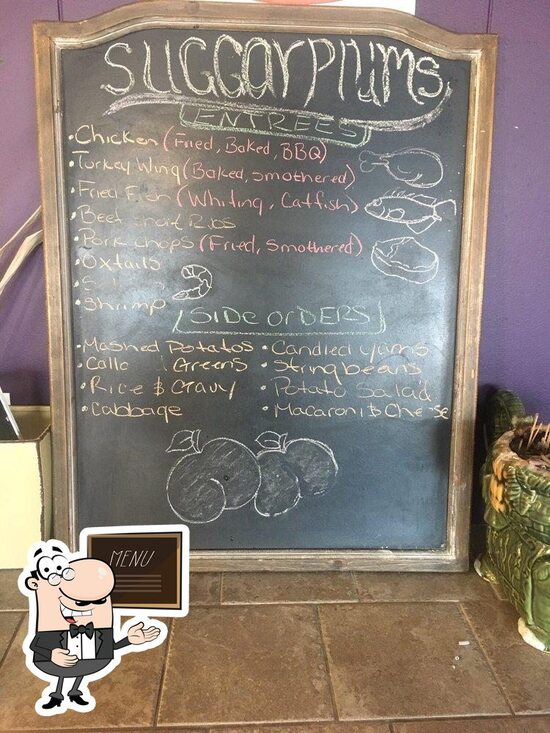 SUGGARPlUMS
ENTREES
• Chicken (Fried, Baked, BBQ)
• Turkey Wing (Baked, Smothered)
• Fried Fish (Whiting, Catfish)
• Beef Short Ribs
• Pork chops (Fried, Smothered)
• Oxtails
• Shrimp
SIDE ORDERS
• Mashed Potatos
• Greens
• Rice & Gravy
• Cabbage
• Candied yams
• Stringbeans
• Potato Salad
• Macaroni & Cheese
MENU